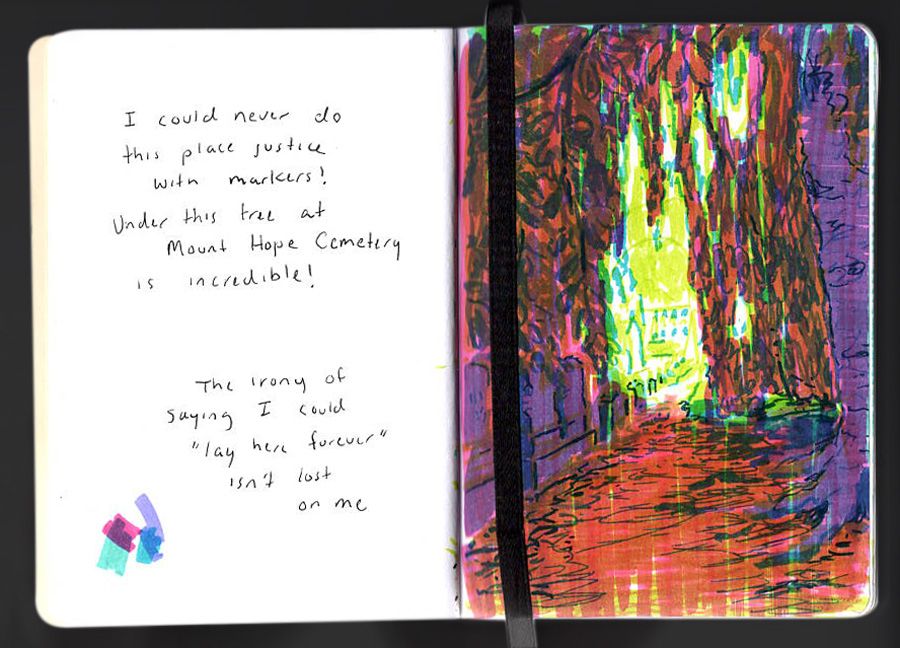 I could never do
this place justice
with markers!
Under this tree at
Mount Hope Cemetery
is incredible!
The irony of
saying I could
"lay here forever"
isn't lost
on me